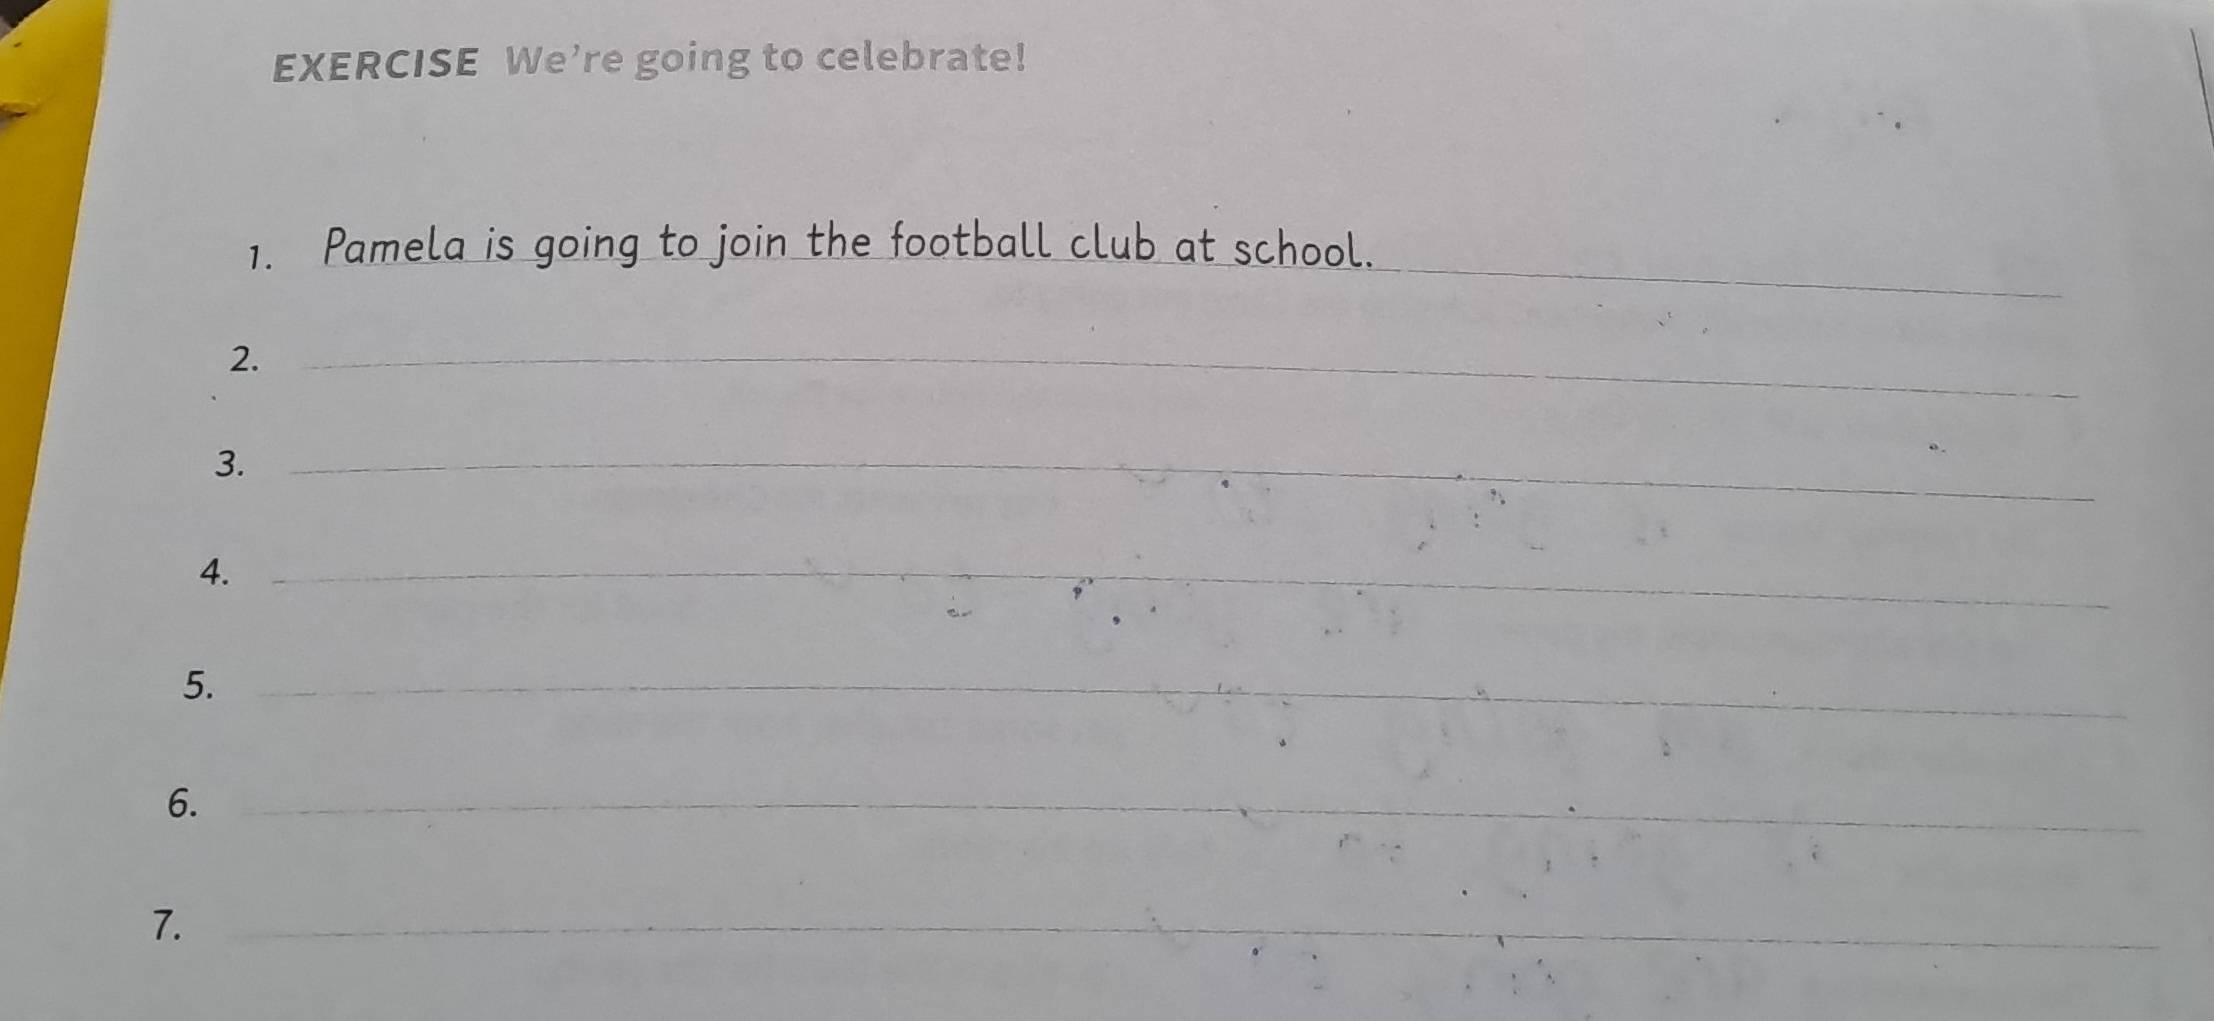 EXERCISE We're going to celebrate!
1. Pamela is going to join the football club at school.
2.
3.
4.
5.
6.
7.